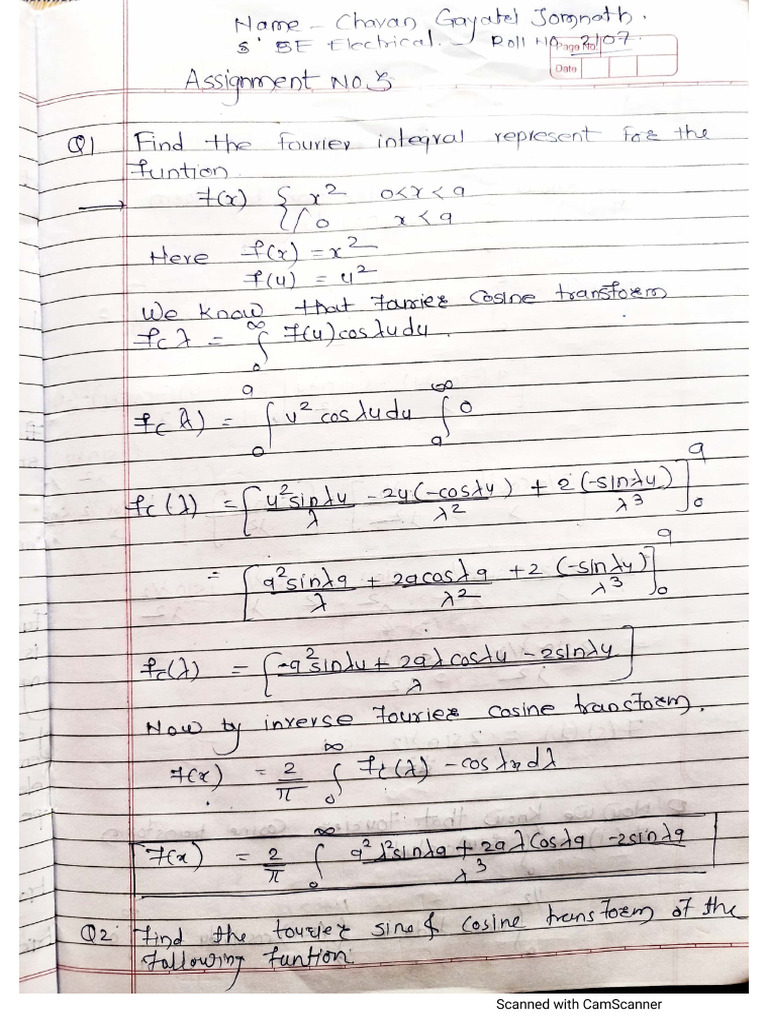 Name - Chavan Gayatri Somnath.
S' BE Electrical. - Roll No 2107.
Page No.
Date
Assignment No. 3
Q1 Find the fourier integral represent for the
funtion.
→ f(x) { x² 0<x<a
{ 0 x<a
Here f(x) = x²
f(u) = u²
We know that Fourier Cosine transform
fc λ = ∫₀^∞ f(u) cos λu du.
fc(λ) = ∫₀^a u² cos λu du ∫ₐ^∞ 0
fc(λ) = [u² sin λu / λ - 2u(-cos λu) / λ² + 2(-sin λu) / λ³]₀^a
= [a² sin λa / λ + 2a cos λa / λ² + 2(-sin λu) / λ³]₀^a
fc(λ) = [-a² sin λu + 2aλ cos λu - 2 sin λu / λ]
Now by inverse fourier cosine transform.
f(x) = 2/π ∫₀^∞ fc(λ) - cos λx dλ
f(x) = 2/π ∫₀^∞ a² λ² sin λa + 2aλ cos λa - 2 sin λa / λ³
Q2 Find the fourier sine & cosine transform of the
following funtion
Scanned with CamScanner